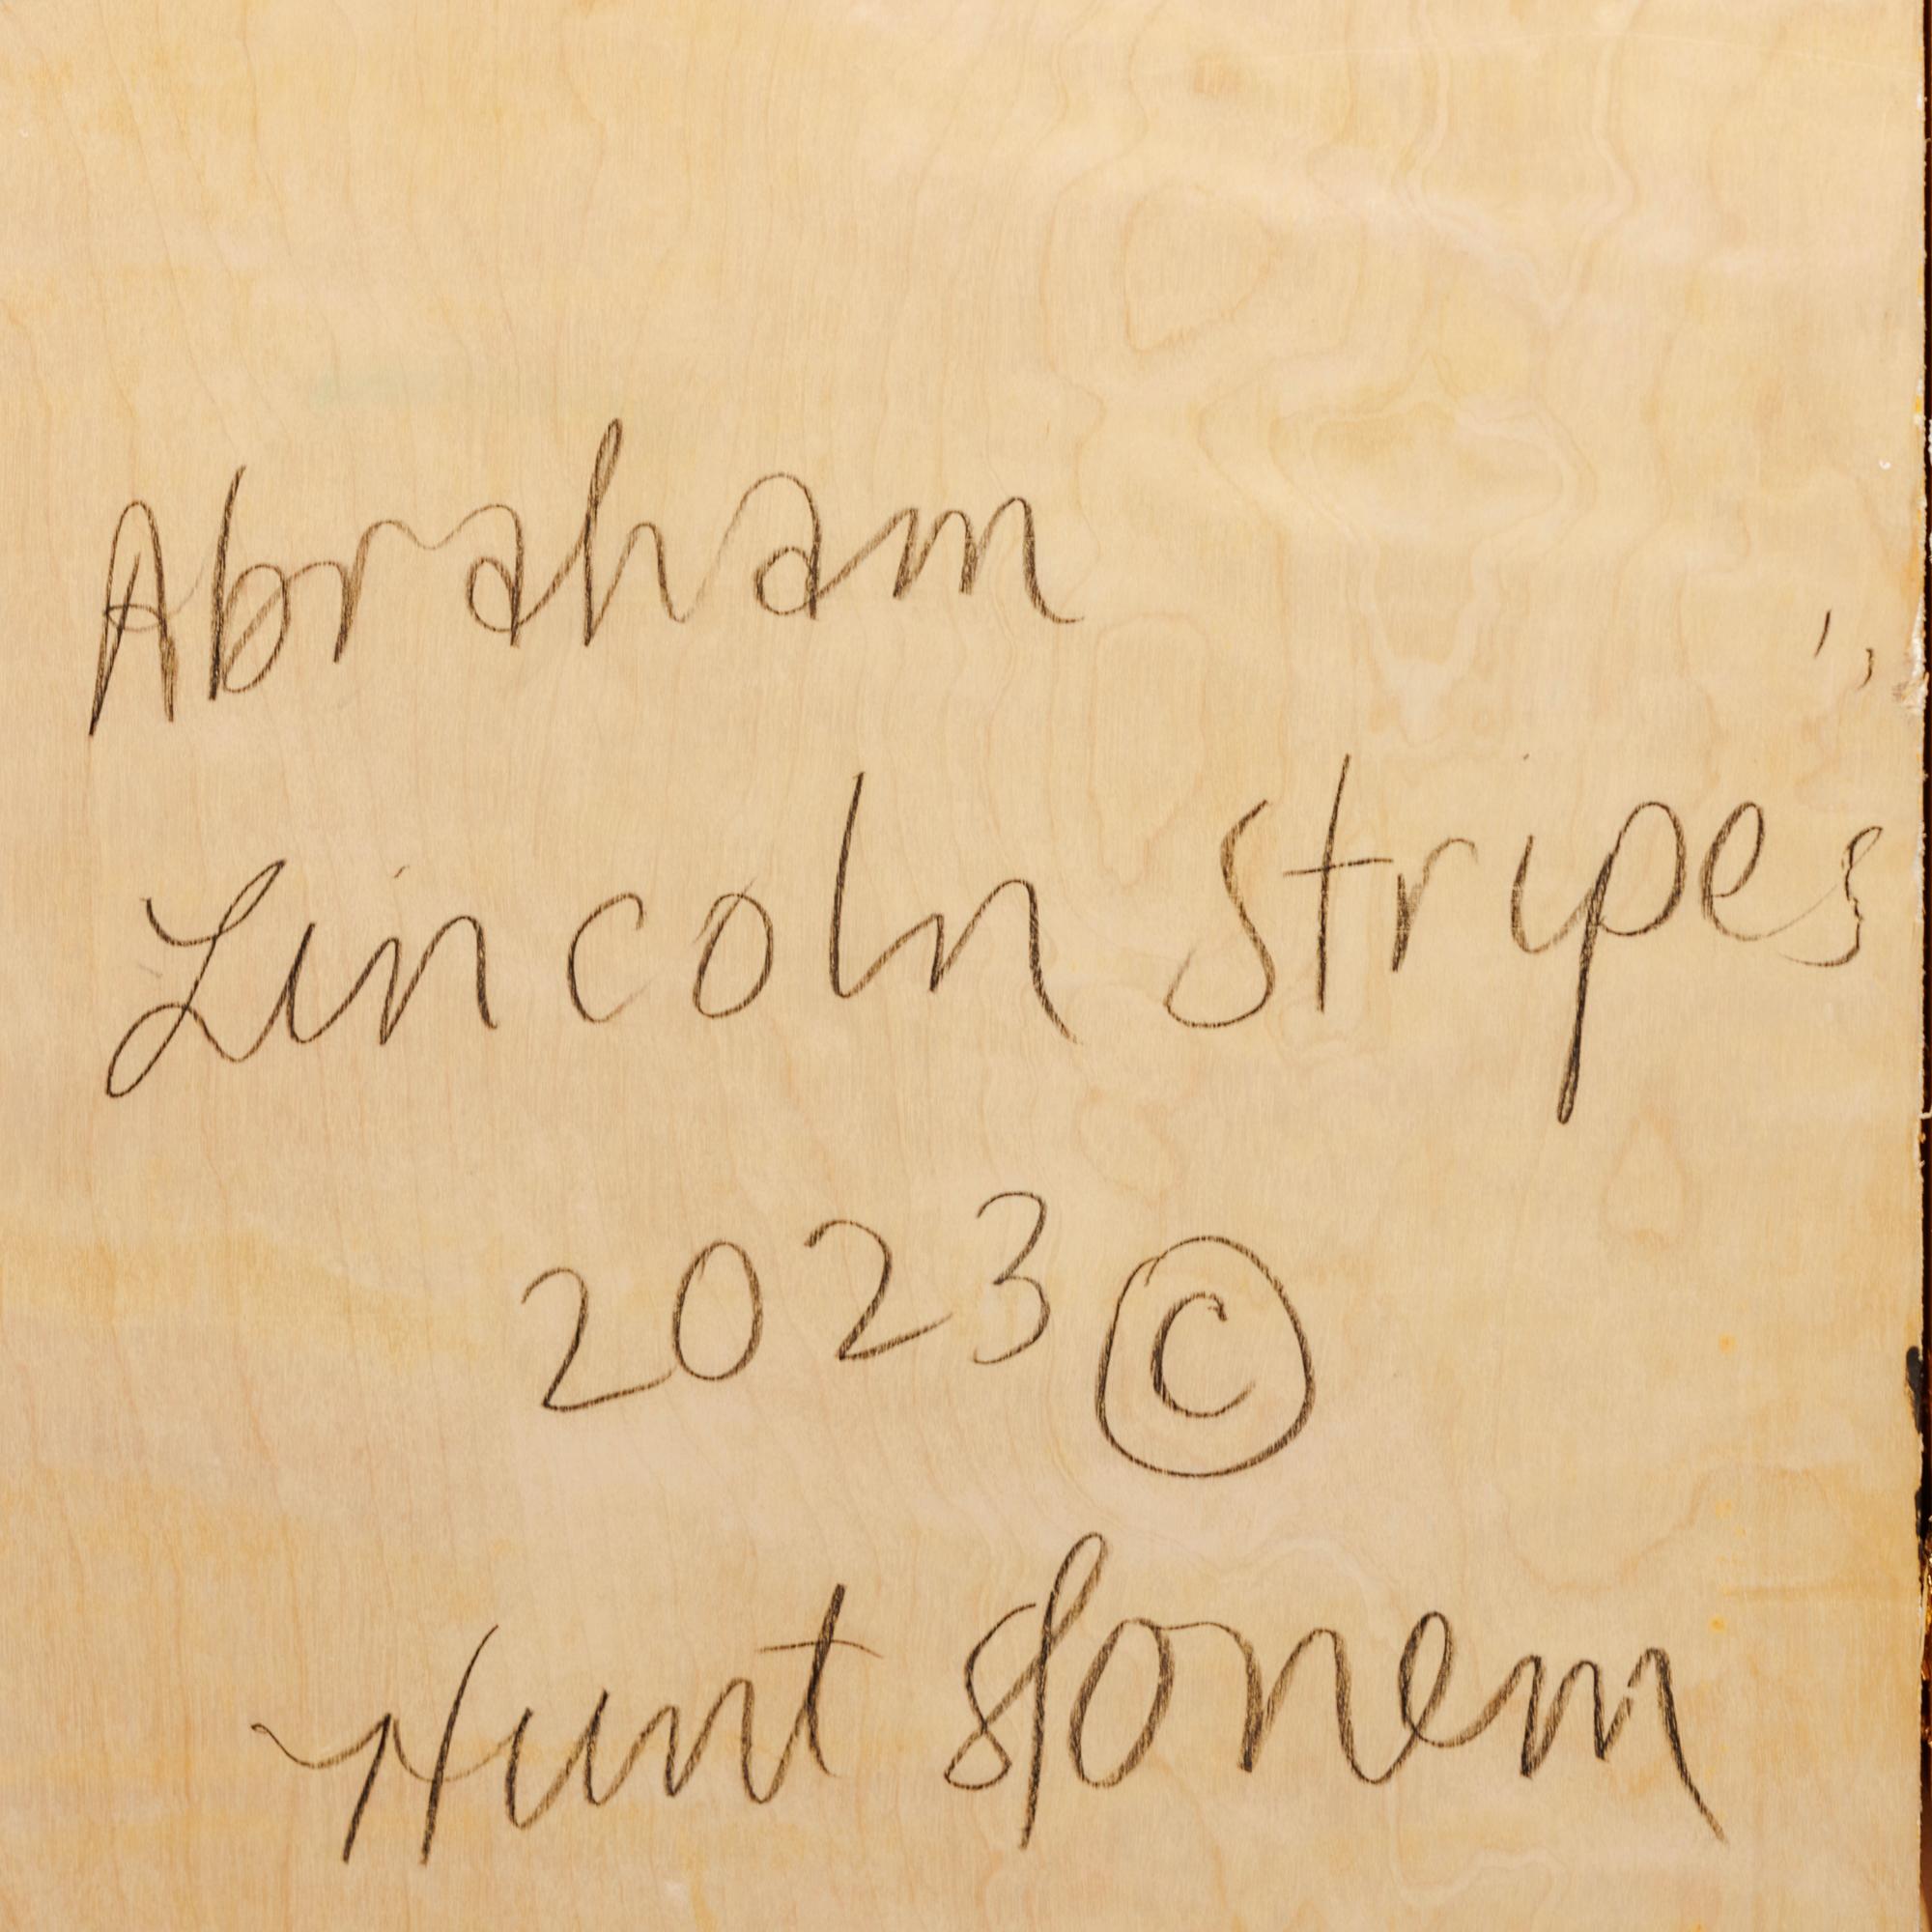 Abraham
Lincoln Stripes"
2023 ©
Hunt Slonem